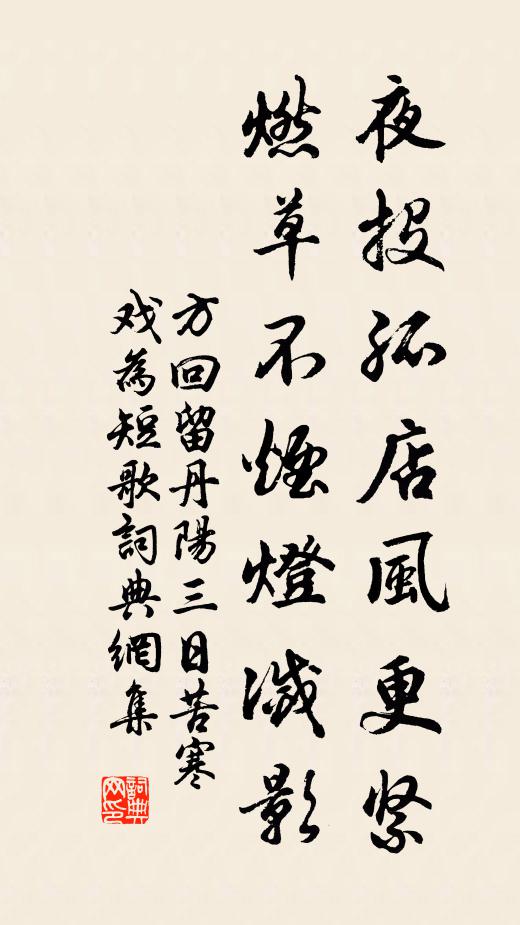 夜投孤店風更紧
燃草不煙燈滅影
方回留丹陽三日苦寒
戏為短歌詞典網集
詞典
网印